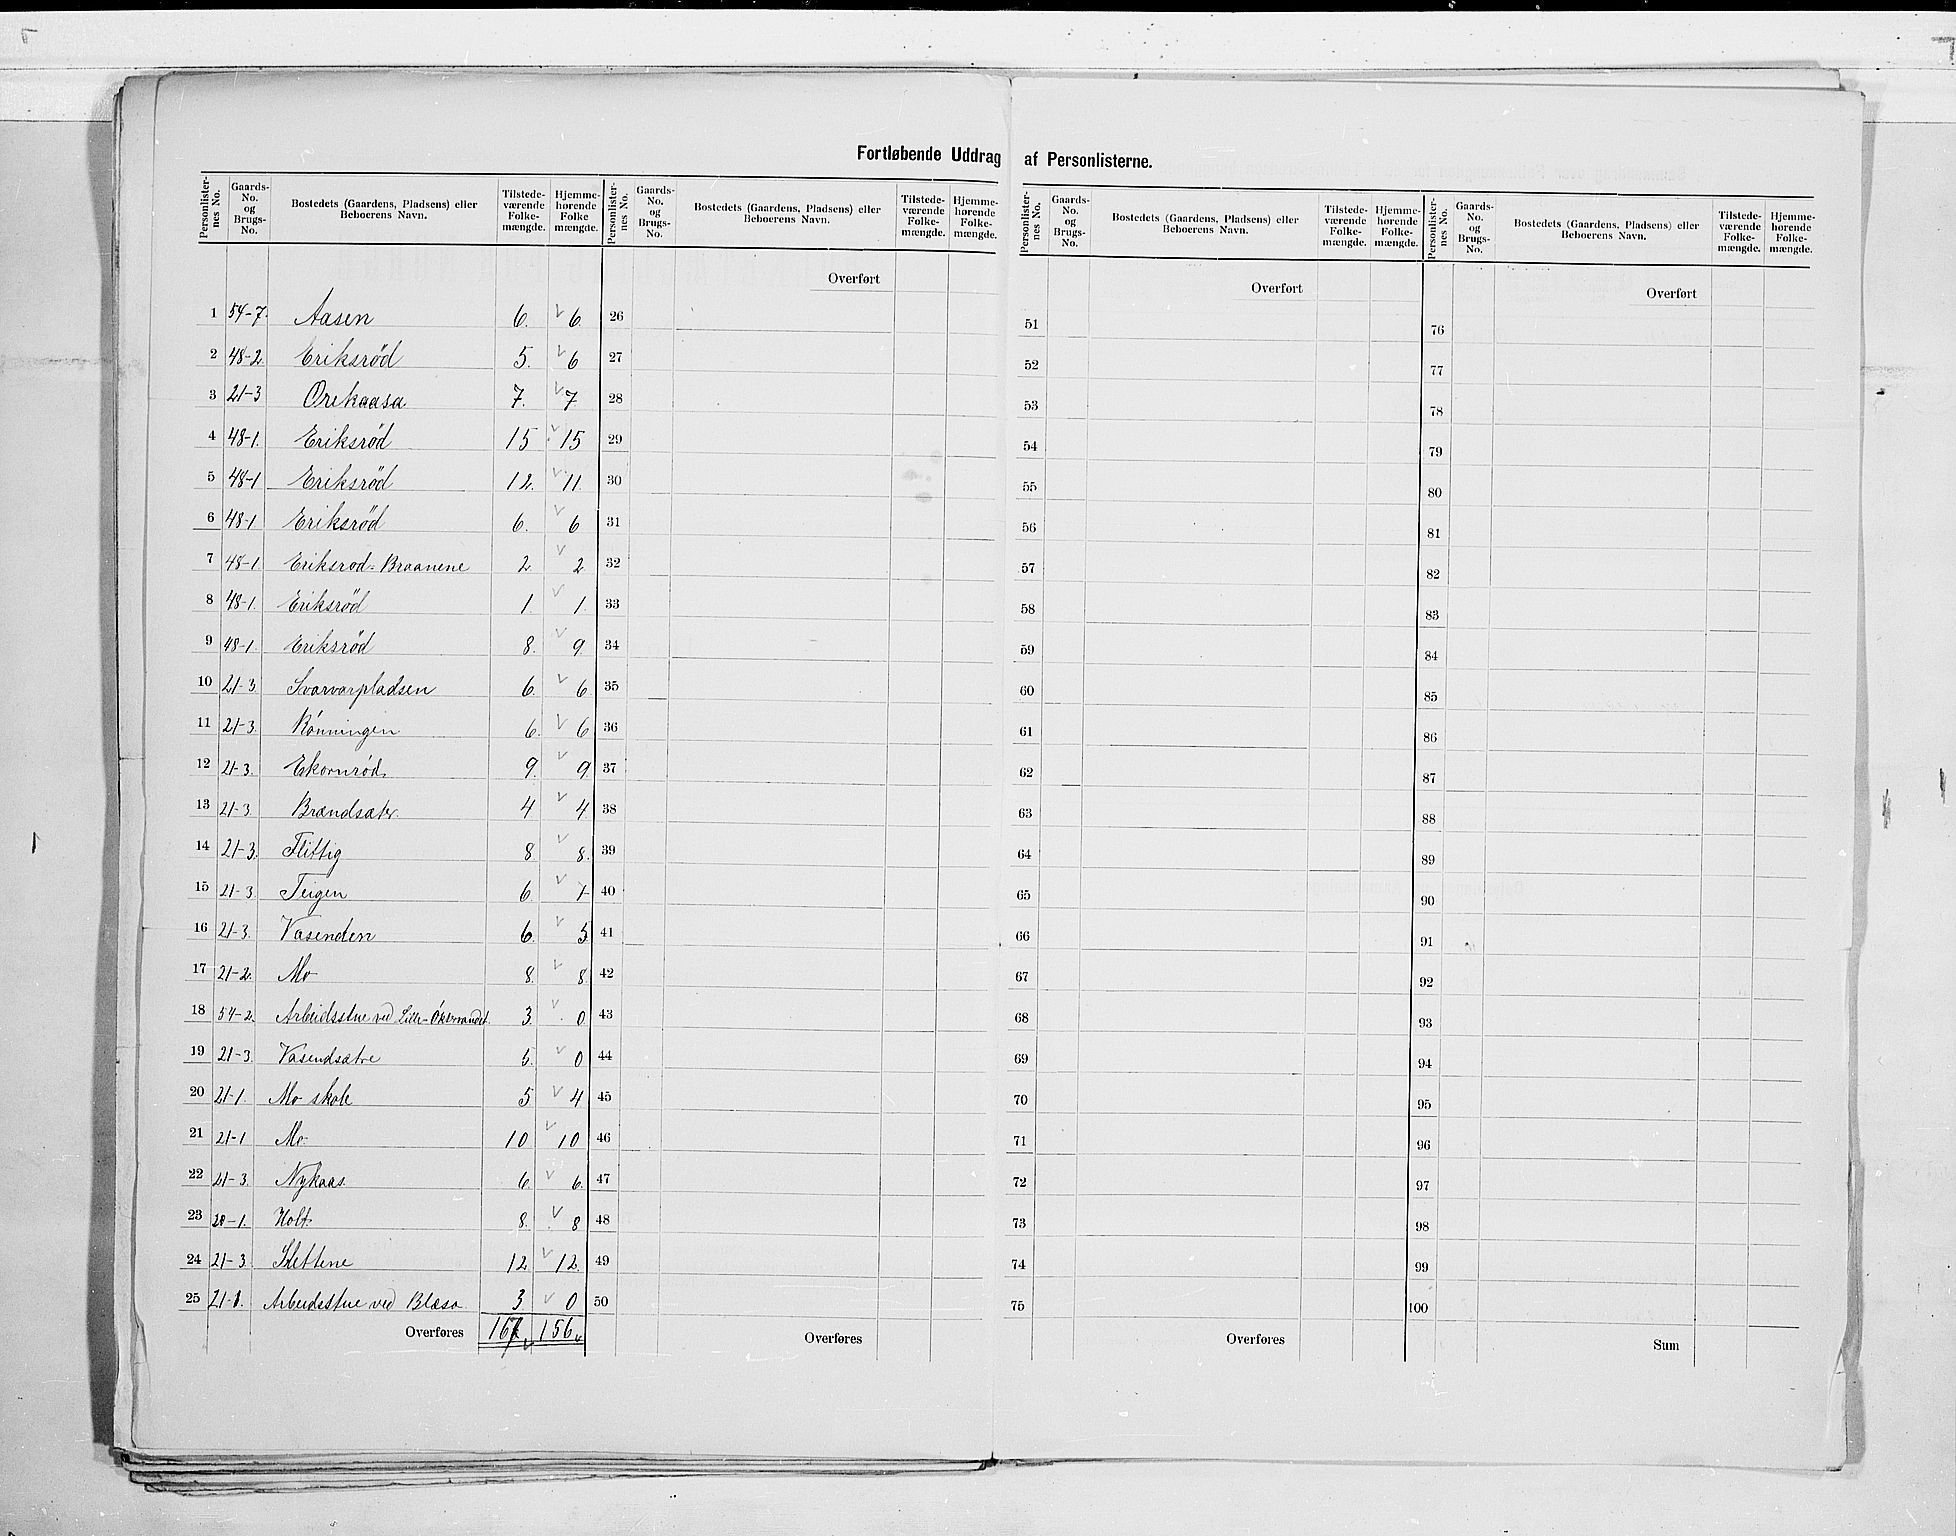 Fortløbende Uddrag af Personlisterne.
Personlister-nes No. Gaards-No. og Brugs-No. Bostedets (Gaardens, Pladsens) eller Beboerens Navn. Tilstede-værende Folke-mængde. Hjemme-hørende Folke mængde.
Personlister-nes No. Gaards-No. og Brugs-No. Bostedets (Gaardens, Pladsens) eller Beboerens Navn. Tilstede-værende Folke-mængde. Hjemme-hørende Folke-mængde.
Personlister-nes No. Gaards-No. og Brugs-No. Bostedets (Gaardens, Pladsens) eller Beboerens Navn. Tilstede-værende Folke-mængde. Hjemme-hørende Folke-mængde.
Personlister-nes No. Gaards-No. og Brugs-No. Bostedets (Gaardens, Pladsens) eller Beboerens Navn. Tilstede-værende Folke-mængde. Hjemme-hørende Folke-mængde.
Overført Overført Overført
1 54-7. Aasen 6. 6. 26 51 76
2 48-2. Eriksröd 5. 6 27 52 77
3 21-3 Orekaasa 7. 7 28 53 78
4 48-1. Eriksröd 15 15 29 54 79
5 48-1 Eriksröd 12. 11. 30 55 80
6 48-1 Eriksröd 6. 6 31 56 81
7 48-1 Eriksrod-Braanene 2 2 32 57 82
8 48-1. Eriksröd 1. 1. 33 58 83
9 48-1. Eriksröd 8. 9. 34 59 84
10 21-3 Svarvarpladsen 6. 6 35 60 85
11 21-3. Rönningen 6. 6 36 61 86
12 21-3. Ekornröd 9. 9 37 62 87
13 21-3 Brændsæter 4 4 38 63 88
14 21-3. Flittig 8 8. 39 64 89
15 21-3. Teigen 6. 7 40 65 90
16 21-3. Vasenden 6. 5 41 66 91
17 21-2. Mo 8. 8 42 67 92
18 54-2. Arbeidsstue ved Lille-Öksevandet 3 0 43 68 93
19 21-3 Vasendsætre 5. 0 44 69 94
20 21-1. Mo skole 5 4 45 70 95
21 21-1 Mo 10 10 46 71 96
22 21-3. Nykaas 6. 6. 47 72 97
23 20-1. Holt 8. 8 48 73 98
24 21-3. Slettene 12 12. 49 74 99
25 21-1. Arbeidsstue ved Blæsa 3 0 50 75 100
Overføres 167 156 Overføres Overføres Sum